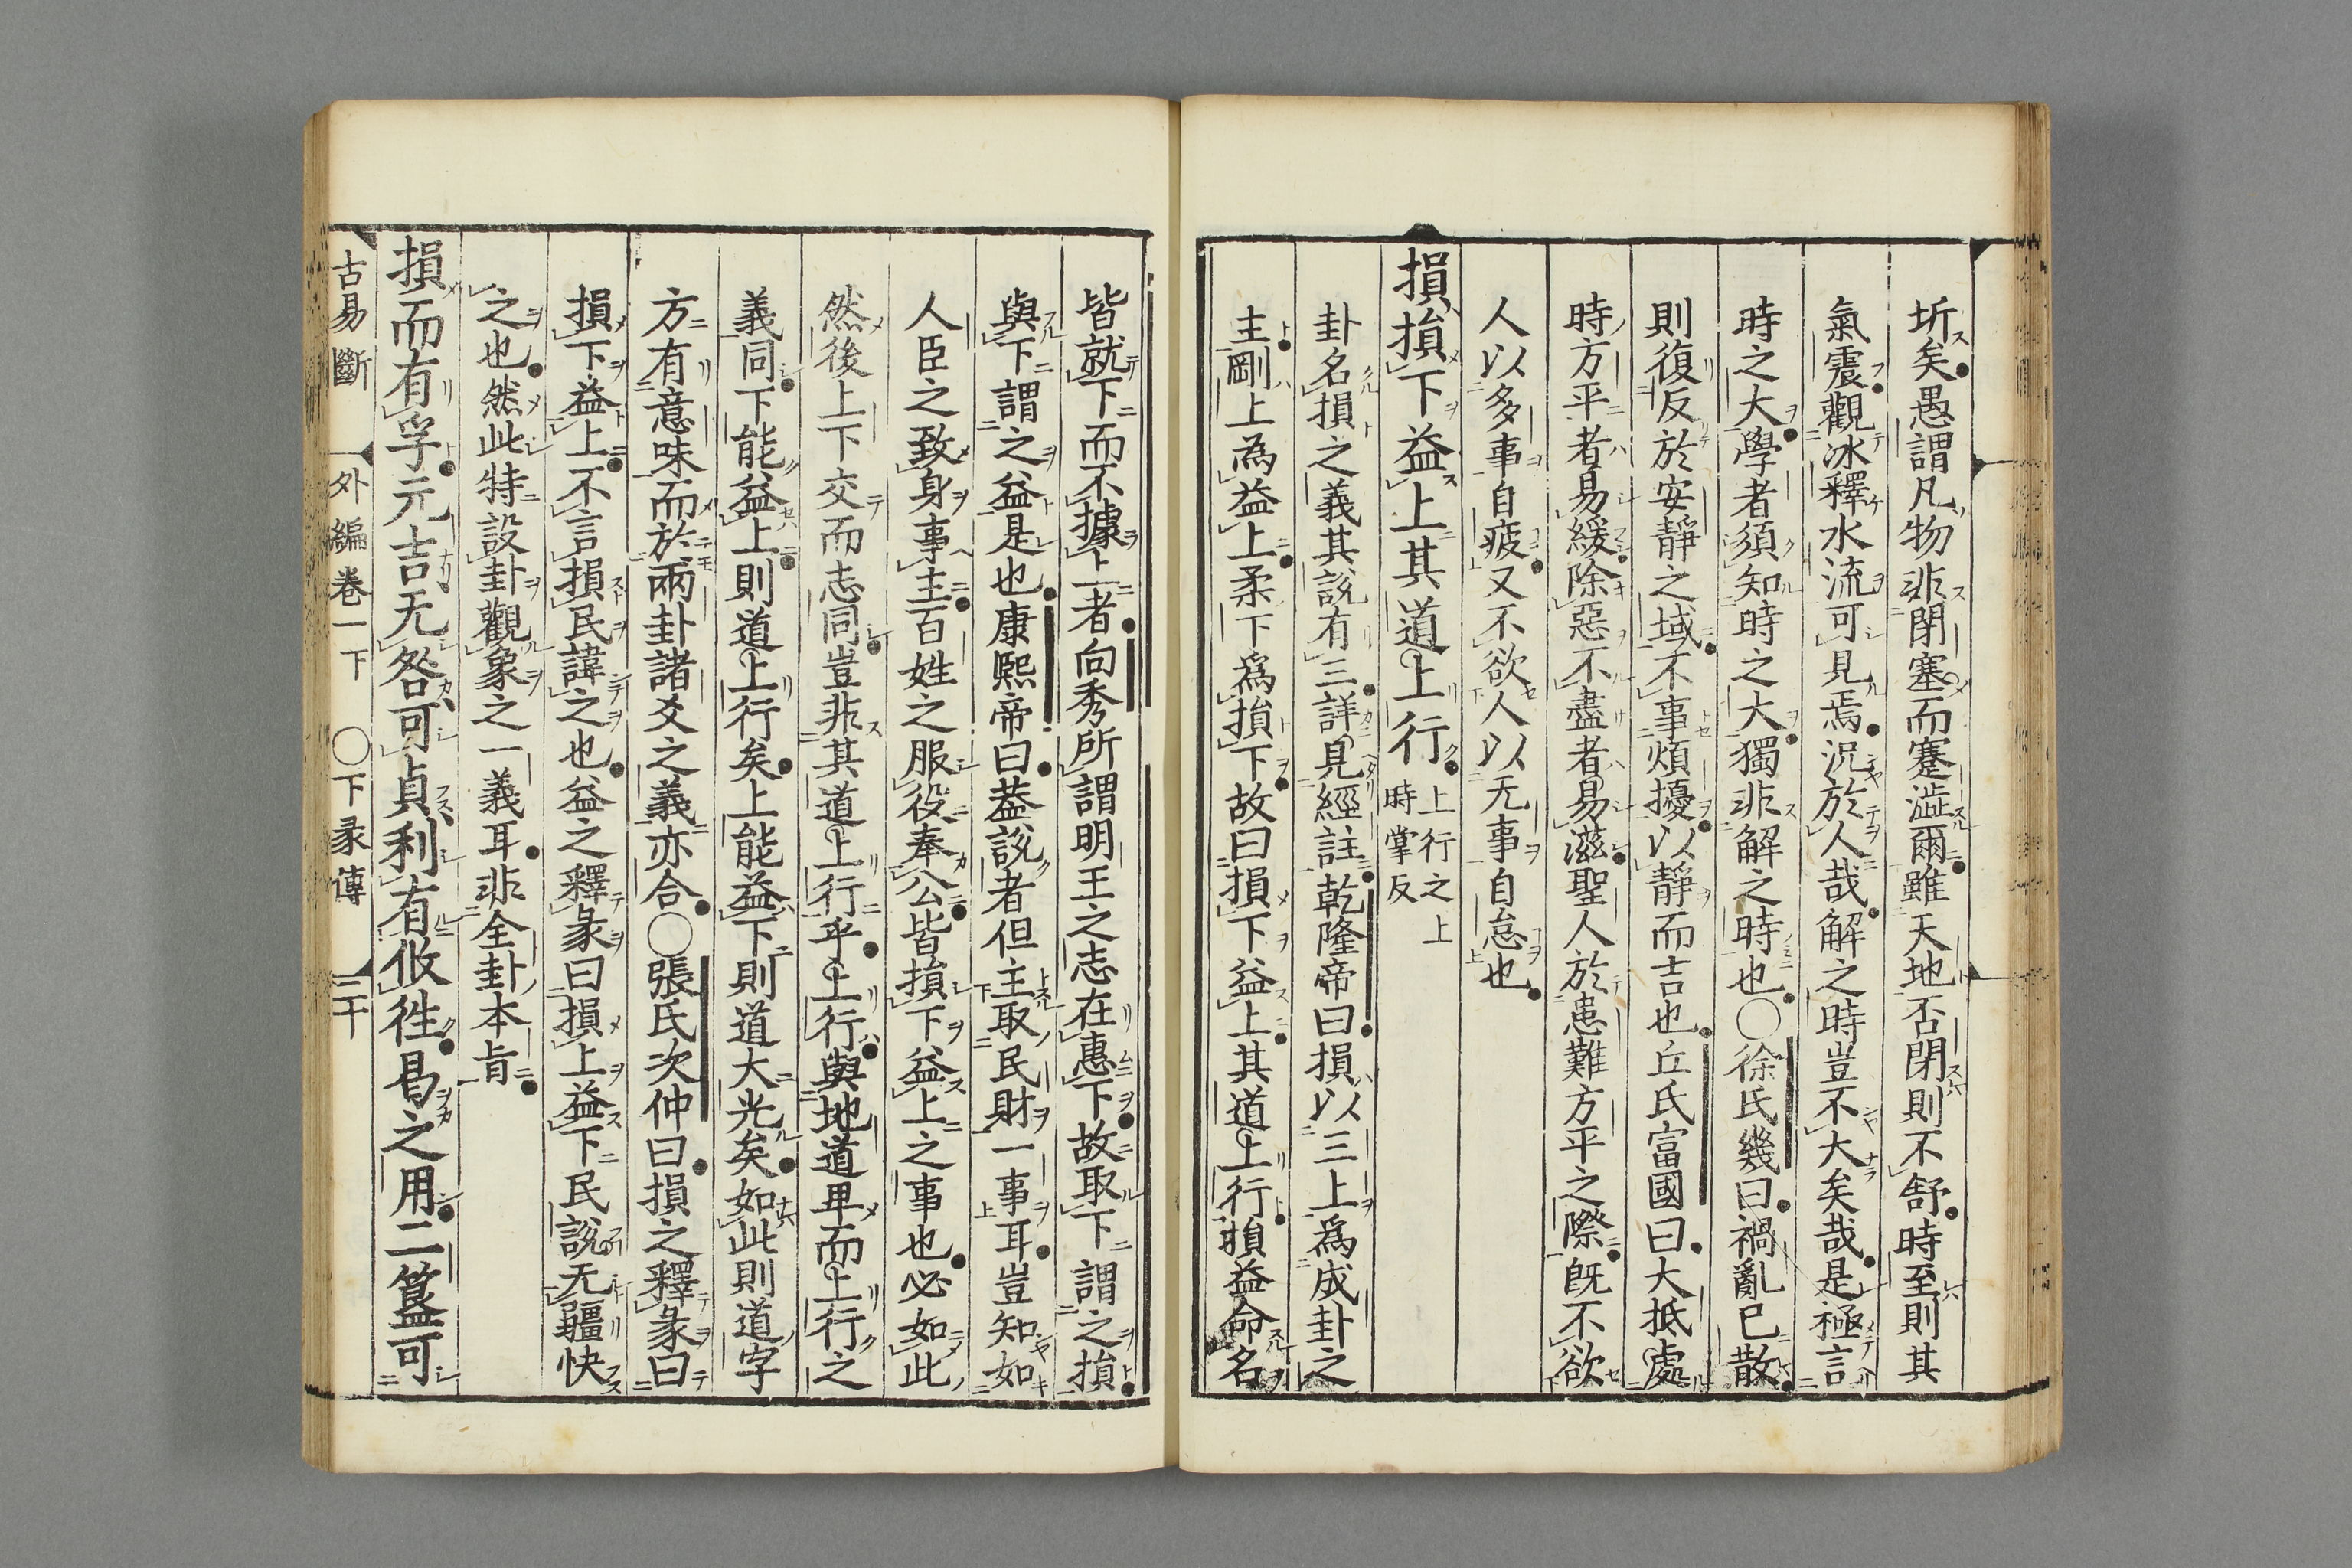 圻矣愚謂凡物非閉塞而蹇澁爾雖天地否閉則不舒時至則其
氣震觀冰釋水流可見焉況於人哉解之時豈不大矣哉是極言
時之大學者須知時之大獨非解之時也○徐氏幾曰禍亂已散
則復反於安靜之域不事煩擾以靜而吉也丘氏富國曰大抵處
時方平者易緩除惡不盡者易滋聖人於患難方平之際旣不欲
人以多事自疲又不欲人以无事自怠也
損損下益上其道上行上行之上時掌反
卦名損之義其說有三詳見經註乾隆帝曰損以三上爲成卦之
主剛上為益上柔下爲損下故曰損下益上其道上行損益命名
皆就下而不據上者向秀所謂明王之志在惠下故取下謂之損
與下謂之益是也康熙帝曰葢說者但主取民財一事耳豈知如
人臣之致身事主百姓之服役奉公皆損下益上之事也必如此
然後上下交而志同豈非其道上行乎上行與地道卑而上行之
義同下能益上則道上行矣上能益下則道大光矣如此則道字
方有意味而於兩卦諸爻之義亦合○張氏次仲曰損之釋彖曰
損下益上不言損民諱之也益之釋彖曰損上益下民說无疆快
之也然此特設卦觀象之一義耳非全卦本旨
損而有孚元吉无咎可貞利有攸徃曷之用二簋可
古易斷 外編卷一下 ○下彖傳 三十